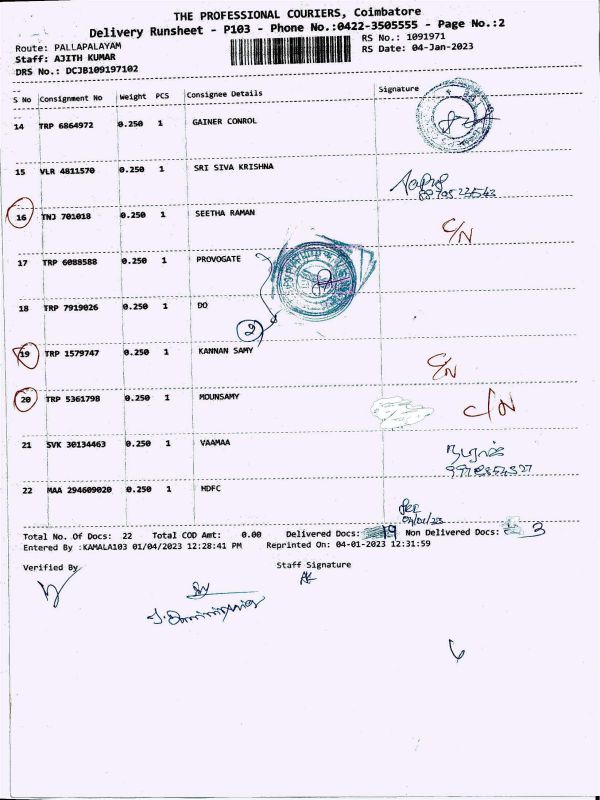 THE PROFESSIONAL COURIERS, Coimbatore
Delivery Runsheet - P103 - Phone No.:0422-3505555 - Page No.:2
Route: PALLAPALAYAM RS No.: 1091971
Staff: AJITH KUMAR RS Date: 04-Jan-2023
DRS No.: DCJB109197102
S No Consignment No Weight PCS Consignee Details Signature
14 TRP 6864972 0.250 1 GAINER CONROL
15 VLR 4811570 0.250 1 SRI SIVA KRISHNA
16 TNJ 701018 0.250 1 SEETHA RAMAN C/N
17 TRP 6088588 0.250 1 PROVOGATE
18 TRP 7919026 0.250 1 DO
2
19 TRP 1579747 0.250 1 KANNAN SAMY C/N
20 TRP 5361798 0.250 1 MOUNSAMY C/N
21 SVK 30134463 0.250 1 VAAMAA
22 MAA 294609020 0.250 1 HDFC
04/01/23
Total No. Of Docs: 22 Total COD Amt: 0.00 Delivered Docs: 19 Non Delivered Docs: 3
Entered By :KAMALA103 01/04/2023 12:28:41 PM Reprinted On: 04-01-2023 12:31:59
Verified By Staff Signature